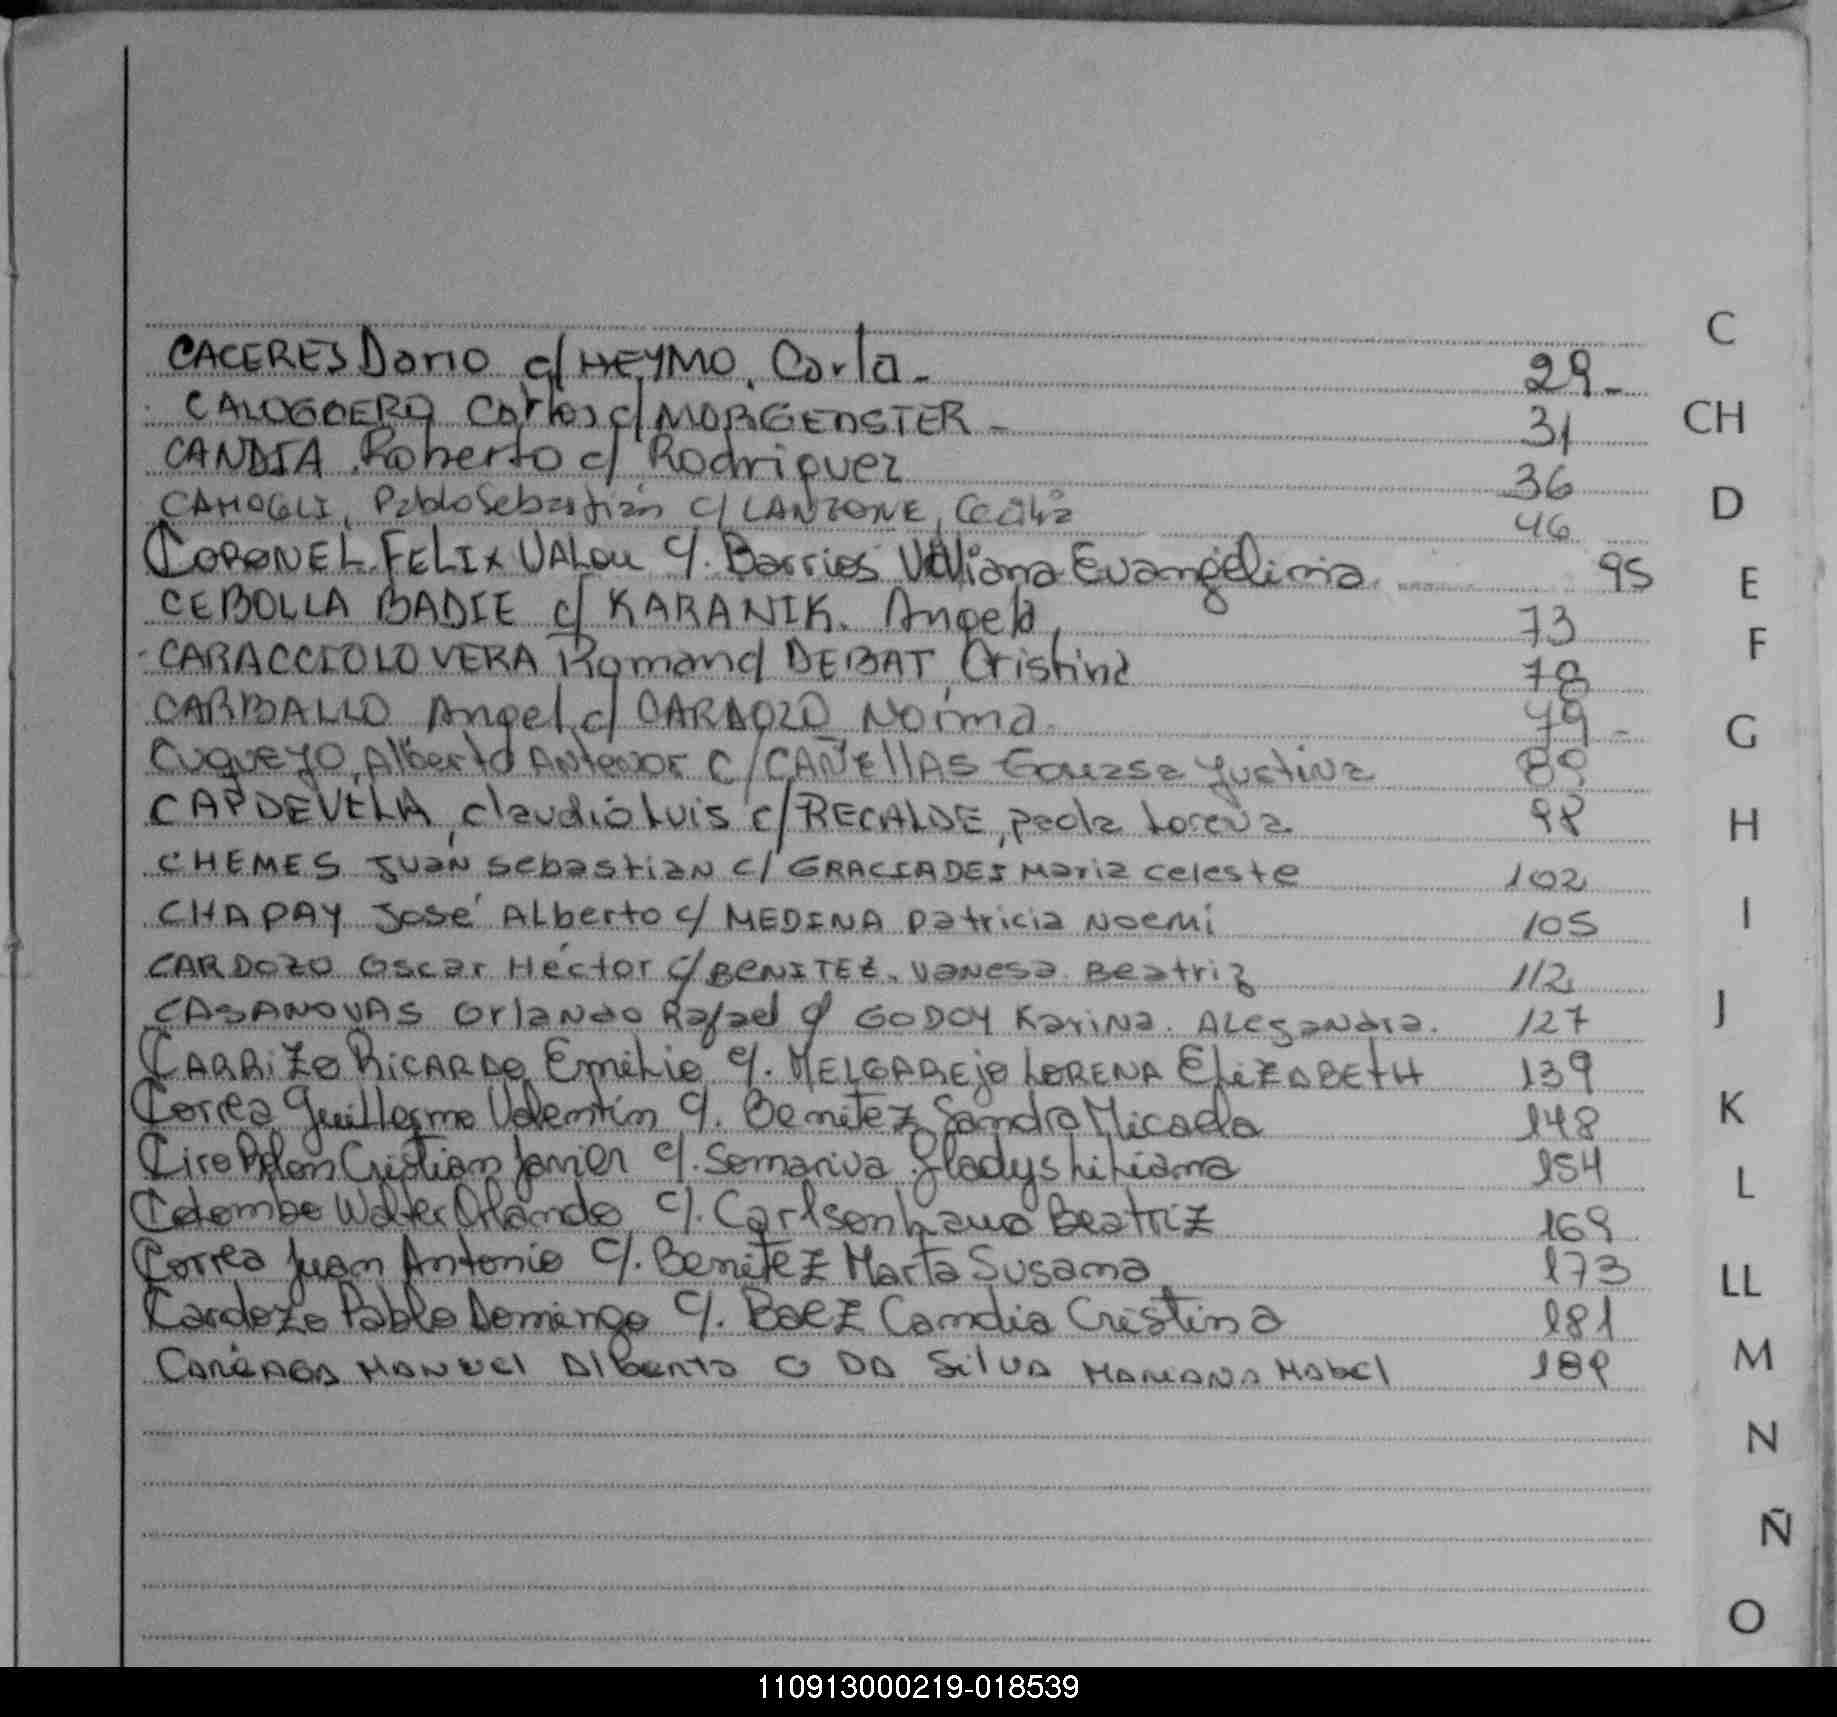 CACERES Dario c/ HEYMO, Carla - 29 -
CALOGOERO Carlos c/ MORGENSTER - 31
CANDIA Roberto c/ Rodriguez 36
CAMOGLI, Pablo Sebastián c/ LANZONE, Cecilia 46
CORONEL FELIX c/. Barrios Viviana Evangelina 95
CEBOLLA BADIE c/ KARANIK. Angela, 73
CARACCIOLO VERA Roman c/ DEBAT, Cristina 78
CARBALLO Angel c/ CARDOZO Norma. 79 -
CUQUEJO, Alberto Antenor c/ CAÑELLAS Justina 89
CAPDEVILA, Claudio Luis c/ RECALDE, Paola Lorena 98
CHEMES Juan Sebastian c/ GRACIADEI Maria Celeste 102
CHAPAY José Alberto c/ MEDINA Patricia Noemí 105
CARDOZO Oscar Héctor c/ BENITEZ. Vanesa. Beatriz 112
CASANOVAS Orlando Rafael c/ GODOY Karina. Alejandra. 127
CARRIZO RICARDO Emilio c/. MELGAREJO LORENA ELIZABETH 139
Correa Guillermo Valentín c/. Benitez Sandra Micaela 148
Ciro Cristian Javier c/. Somariva Gladys Liliana 154
Colombo Walter Orlando c/. Carlson Laura Beatriz 169
Correa Juan Antonio c/. Benitez Marta Susana 173
Cardozo Pablo Domingo c/. Baez Candia Cristina 181
MANUEL Alberto c/ DA SILVA MARIANA Mabel 189
C
CH
D
E
F
G
H
I
J
K
L
LL
M
N
Ñ
O
110913000219-018539